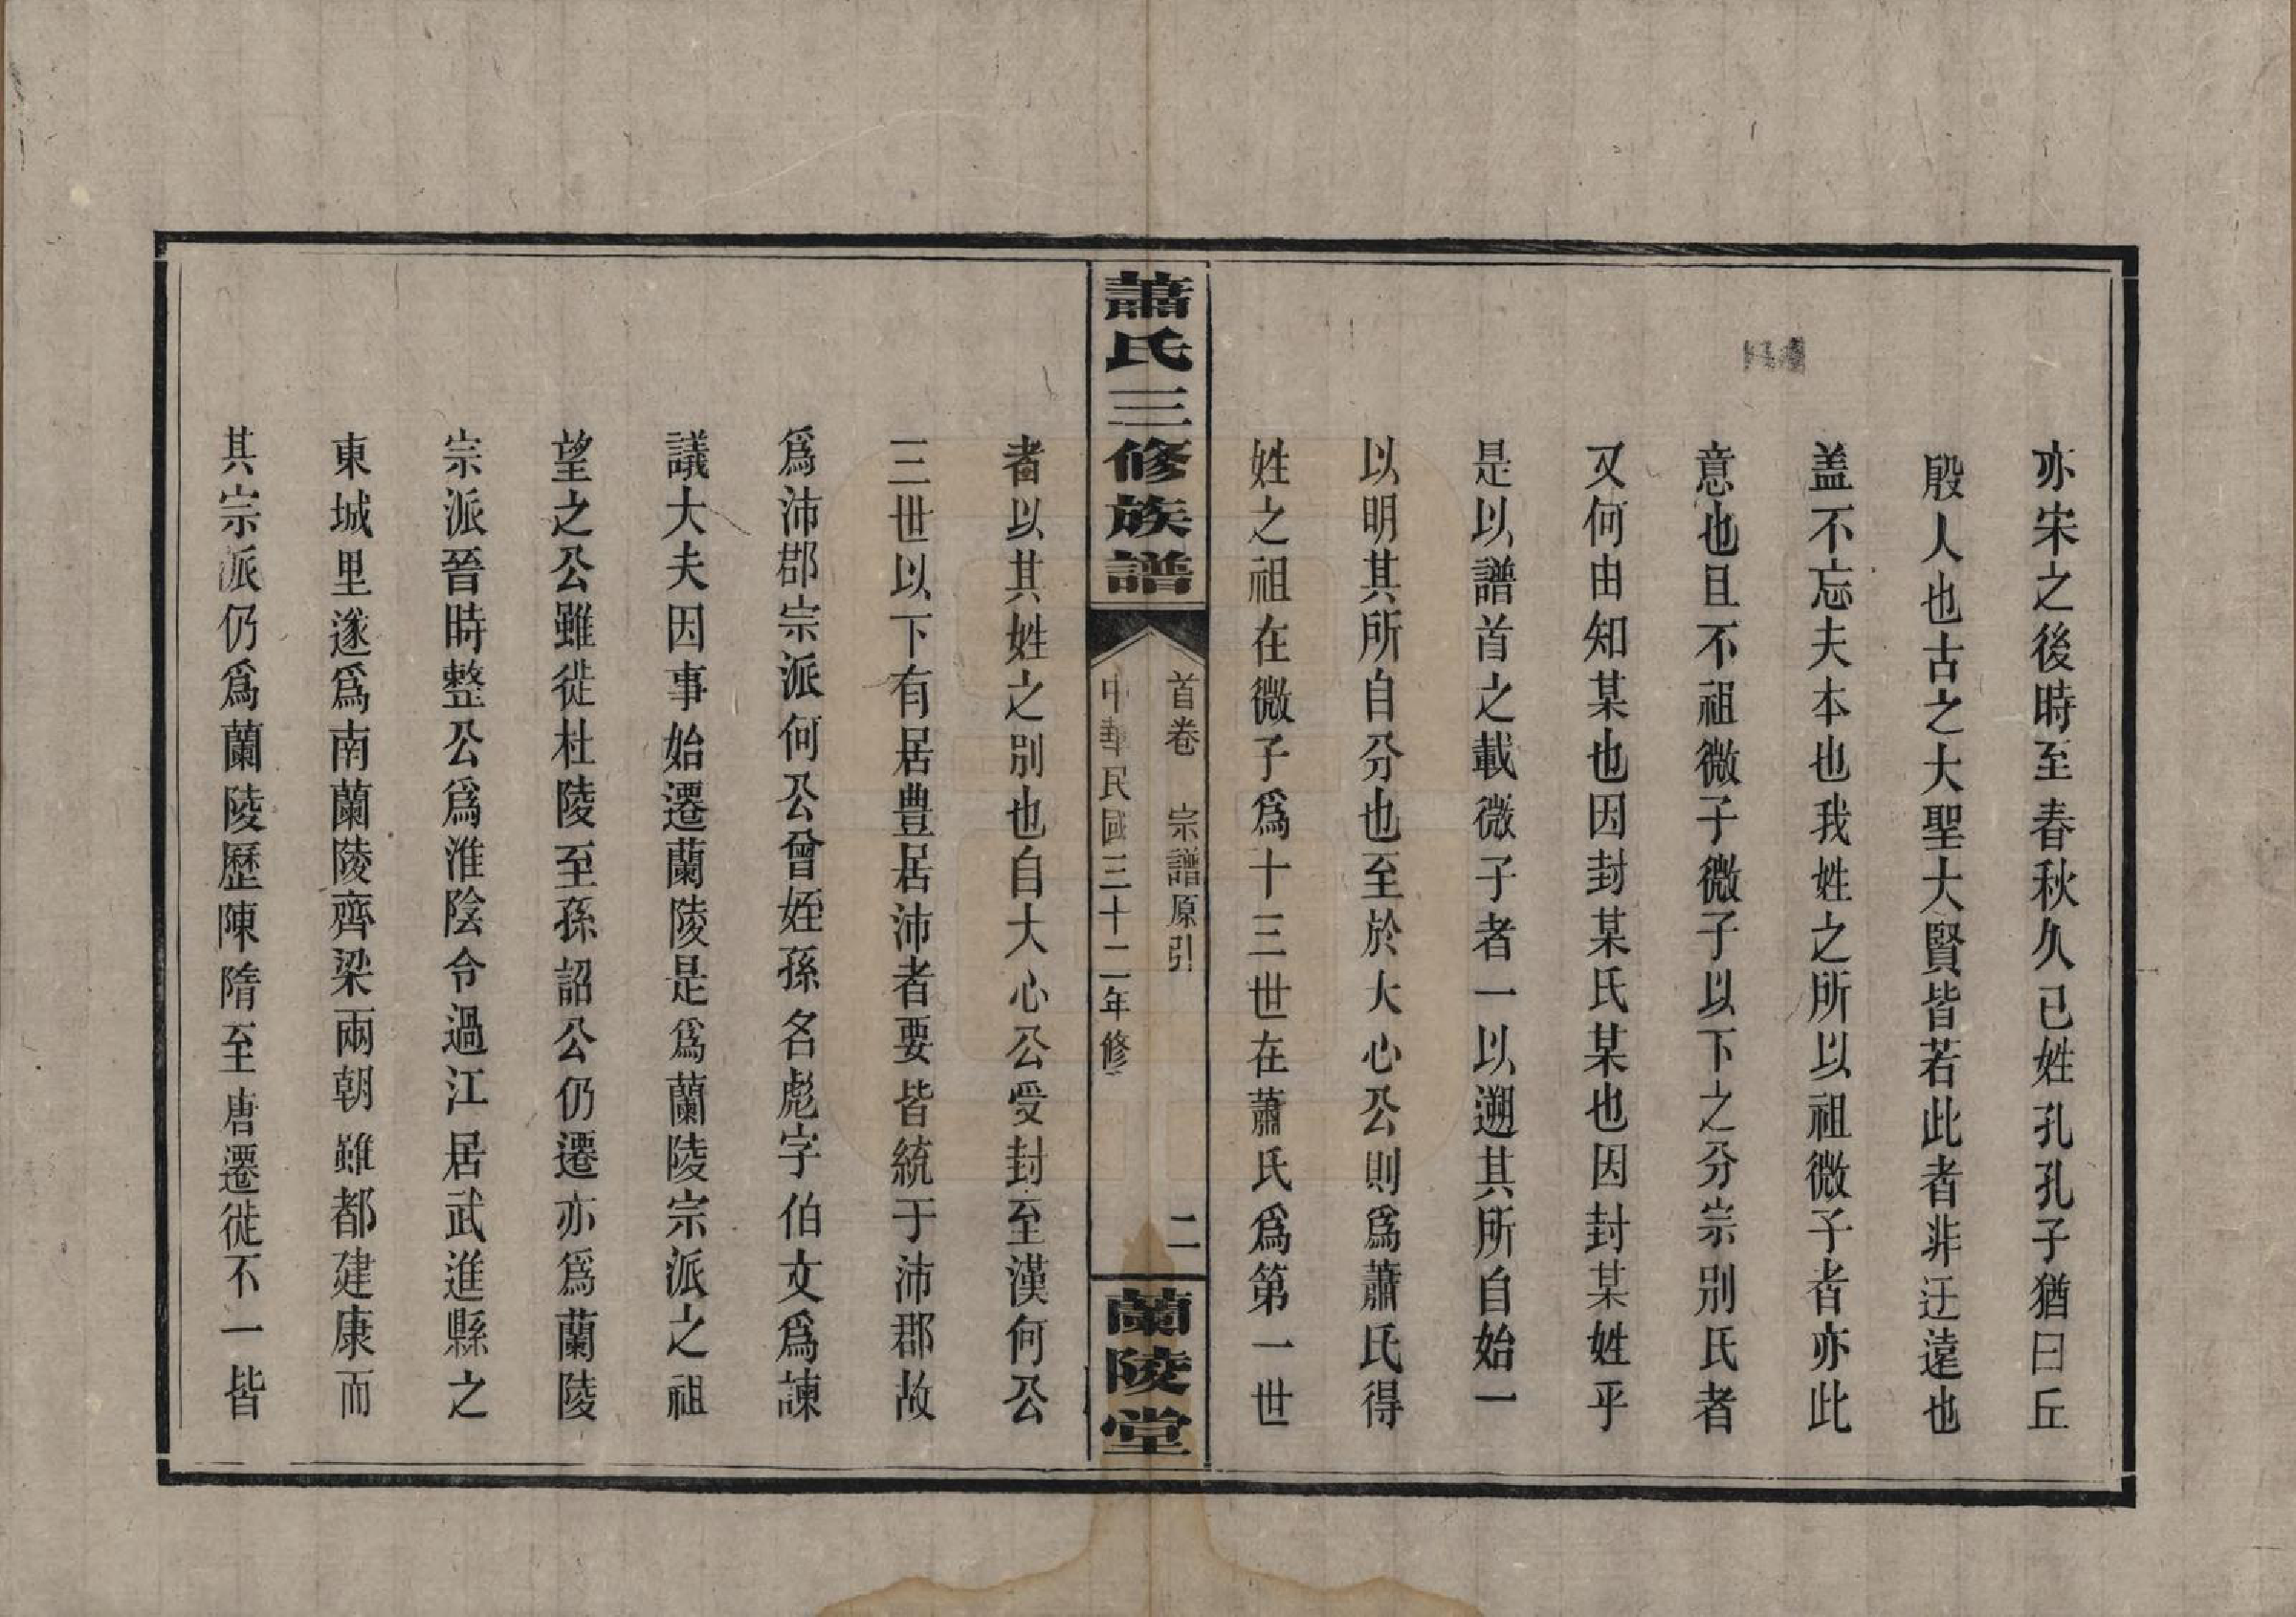 亦宋之後時至春秋久已姓孔孔子猶曰丘
殷人也古之大聖大賢皆若此者非迂遠也
盖不忘夫本也我姓之所以祖微子者亦此
意也且不祖微子微子以下之分宗别氏者
又何由知某也因封某氏某也因封某姓乎
是以譜首之載微子者一以遡其所自始一
以明其所自分也至於大心公則爲蕭氏得
姓之祖在微子爲十三世在蕭氏爲第一世
蕭氏三修族譜
首卷 宗譜原引 二
中華民國三十二年修
蘭陵堂
者以其姓之别也自大心公受封至漢何公
三世以下有居豊居沛者要皆統于沛郡故
爲沛郡宗派何公曾姪孫名彪字伯文爲諫
議大夫因事始遷蘭陵是爲蘭陵宗派之祖
望之公雖徙杜陵至孫詔公仍遷亦爲蘭陵
宗派晉時整公爲淮陰令過江居武進縣之
東城里遂爲南蘭陵齊梁兩朝雖都建康而
其宗派仍爲蘭陵歷陳隋至唐遷徙不一皆